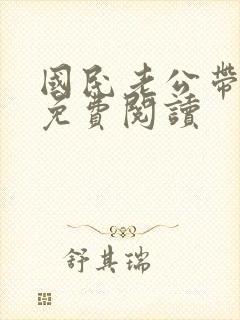 國民老公帶
免費閱讀
舒其瑞